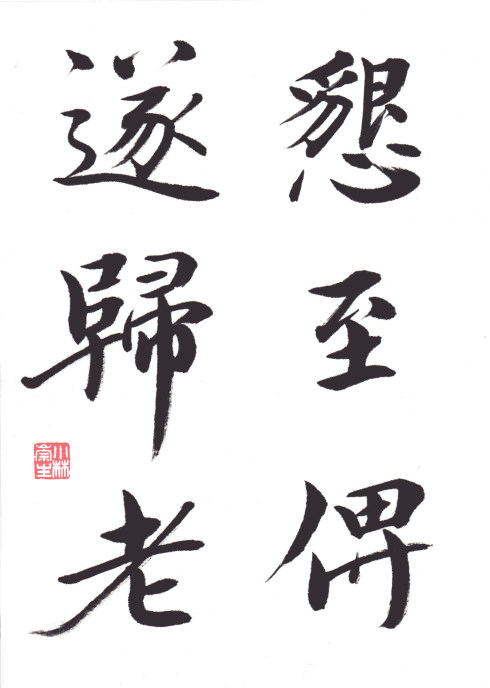 懇至俾
遂歸老
小林
崇生